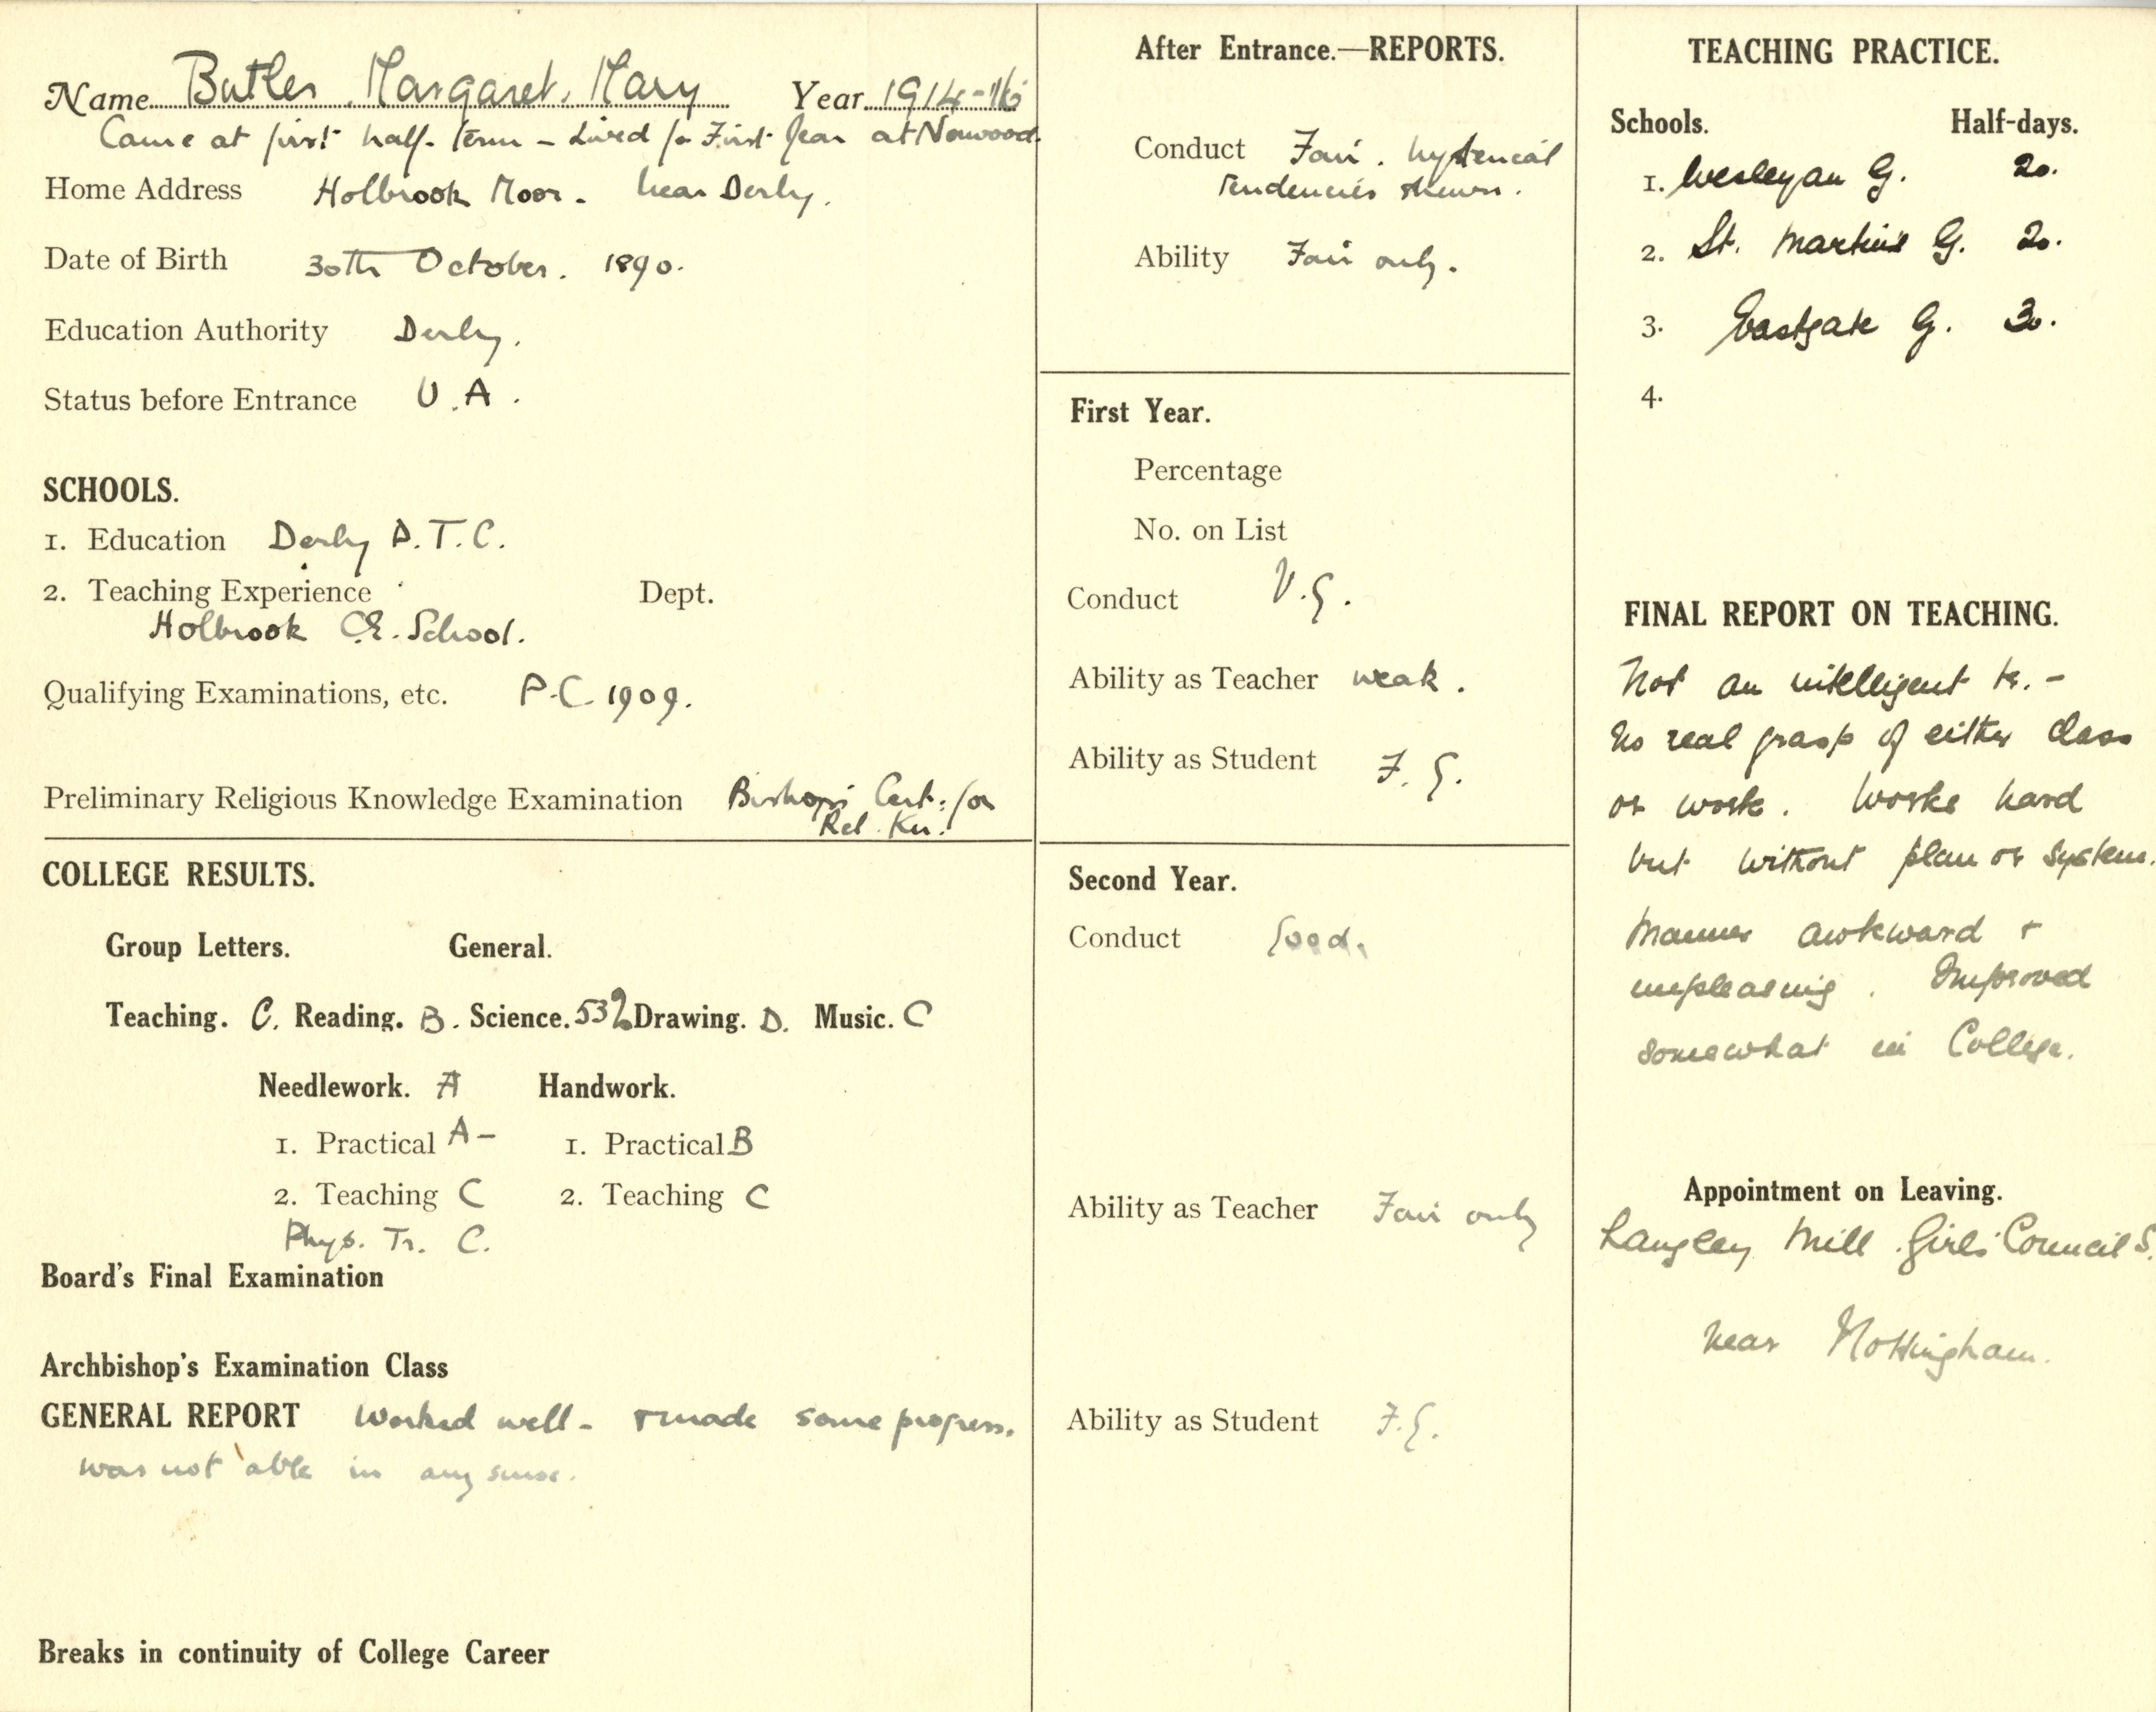 Name Butler, Margaret, Mary Year 1914-16
Came at first half-term - Lived for First Year at Norwood.
Home Address Holbrook Moor. near Derby.
Date of Birth 30th October. 1890.
Education Authority Derby.
Status before Entrance U.A.
SCHOOLS.
1. Education Derby P.T.C.
2. Teaching Experience Dept.
Holbrook C.E. School.
Qualifying Examinations, etc. P.C. 1909.
Preliminary Religious Knowledge Examination Bishop's Cert: for
Rel. Kn.
COLLEGE RESULTS.
Group Letters. General.
Teaching. C. Reading. B. Science. 53% Drawing. D. Music. C
Needlework. A Handwork.
1. Practical A- 1. Practical B
2. Teaching C 2. Teaching C
Phys. Tr. C.
Board's Final Examination
Archbishop's Examination Class
GENERAL REPORT Worked well - & made some progress.
was not able in any sense.
Breaks in continuity of College Career
After Entrance.—REPORTS.
Conduct Fair. hysterical
tendencies shewn.
Ability Fair only.
First Year.
Percentage
No. on List
Conduct V.G.
Ability as Teacher weak.
Ability as Student F.G.
Second Year.
Conduct Good.
Ability as Teacher Fair only
Ability as Student F.G.
TEACHING PRACTICE.
Schools. Half-days.
1. Wesleyan G. 20.
2. St. Martin's G. 20.
3. Eastgate G. 30.
4.
FINAL REPORT ON TEACHING.
Not an intelligent tr. -
No real grasp of either class
or work. Works hard
but without plan or system.
Manner awkward &
unpleasing. Improved
somewhat in College.
Appointment on Leaving.
Langley Mill Girls' Council S.
near Nottingham.